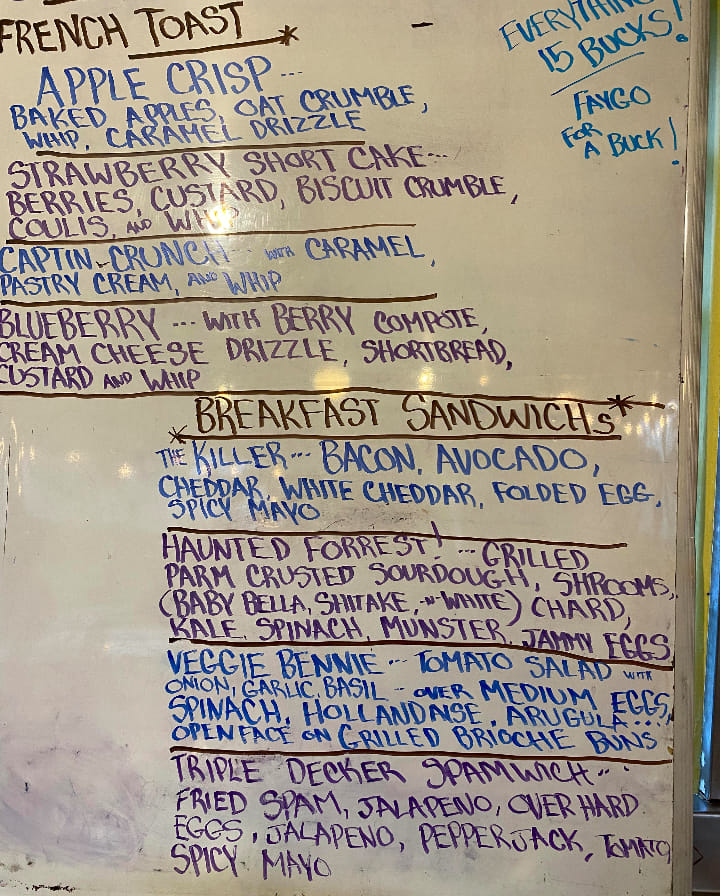 FRENCH TOAST *
EVERYTHING
15 BUCKS!
FAYGO
FOR
A BUCK!
APPLE CRISP...
BAKED APPLES, OAT CRUMBLE,
WHIP, CARAMEL DRIZZLE
STRAWBERRY SHORT CAKE...
BERRIES, CUSTARD, BISCUIT CRUMBLE,
COULIS, AND WHIP
CAPTIN-CRUNCH WITH CARAMEL,
PASTRY CREAM, AND WHIP
BLUEBERRY --- WITH BERRY COMPOTE,
CREAM CHEESE DRIZZLE, SHORTBREAD,
CUSTARD AND WHIP
* BREAKFAST SANDWICHS *
THE KILLER... BACON, AVOCADO,
CHEDDAR, WHITE CHEDDAR, FOLDED EGG,
SPICY MAYO
HAUNTED FORREST! ... GRILLED
PARM CRUSTED SOURDOUGH, SHROOMS,
(BABY BELLA, SHITAKE, -N- WHITE) CHARD,
KALE, SPINACH, MUNSTER, JAMMY EGGS
VEGGIE BENNIE ... TOMATO SALAD WITH
ONION, GARLIC, BASIL - OVER MEDIUM EGGS,
SPINACH, HOLLANDAISE, ARUGULA...
OPENFACE ON GRILLED BRIOCHE BUNS
TRIPLE DECKER SPAMWICH...
FRIED SPAM, JALAPENO, OVER HARD
EGGS, JALAPENO, PEPPERJACK, TOMATO
SPICY MAYO